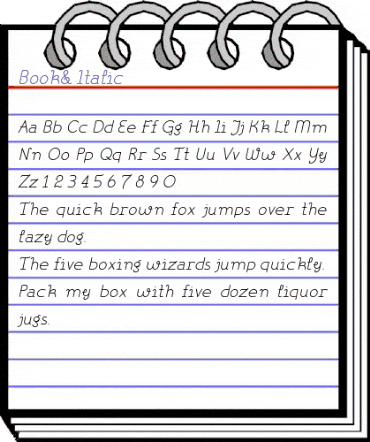 Book& Italic
Aa Bb Cc Dd Ee Ff Gg Hh Ii Jj Kk Ll Mm
Nn Oo Pp Qq Rr Ss Tt Uu Vv Ww Xx Yy
Zz 1 2 3 4 5 6 7 8 9 0
The quick brown fox jumps over the
lazy dog.
The five boxing wizards jump quickly.
Pack my box with five dozen liquor
jugs.